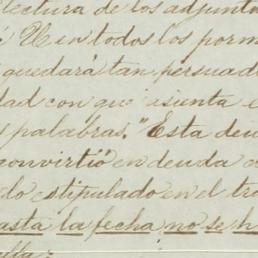 lectura de los adjunto
í U. en todos los porm
quedará tan persuad
dad con que asunta e
palabras, "Esta deu
convirtió en deuda c
do estipulado en el tra
asta la fecha no se h